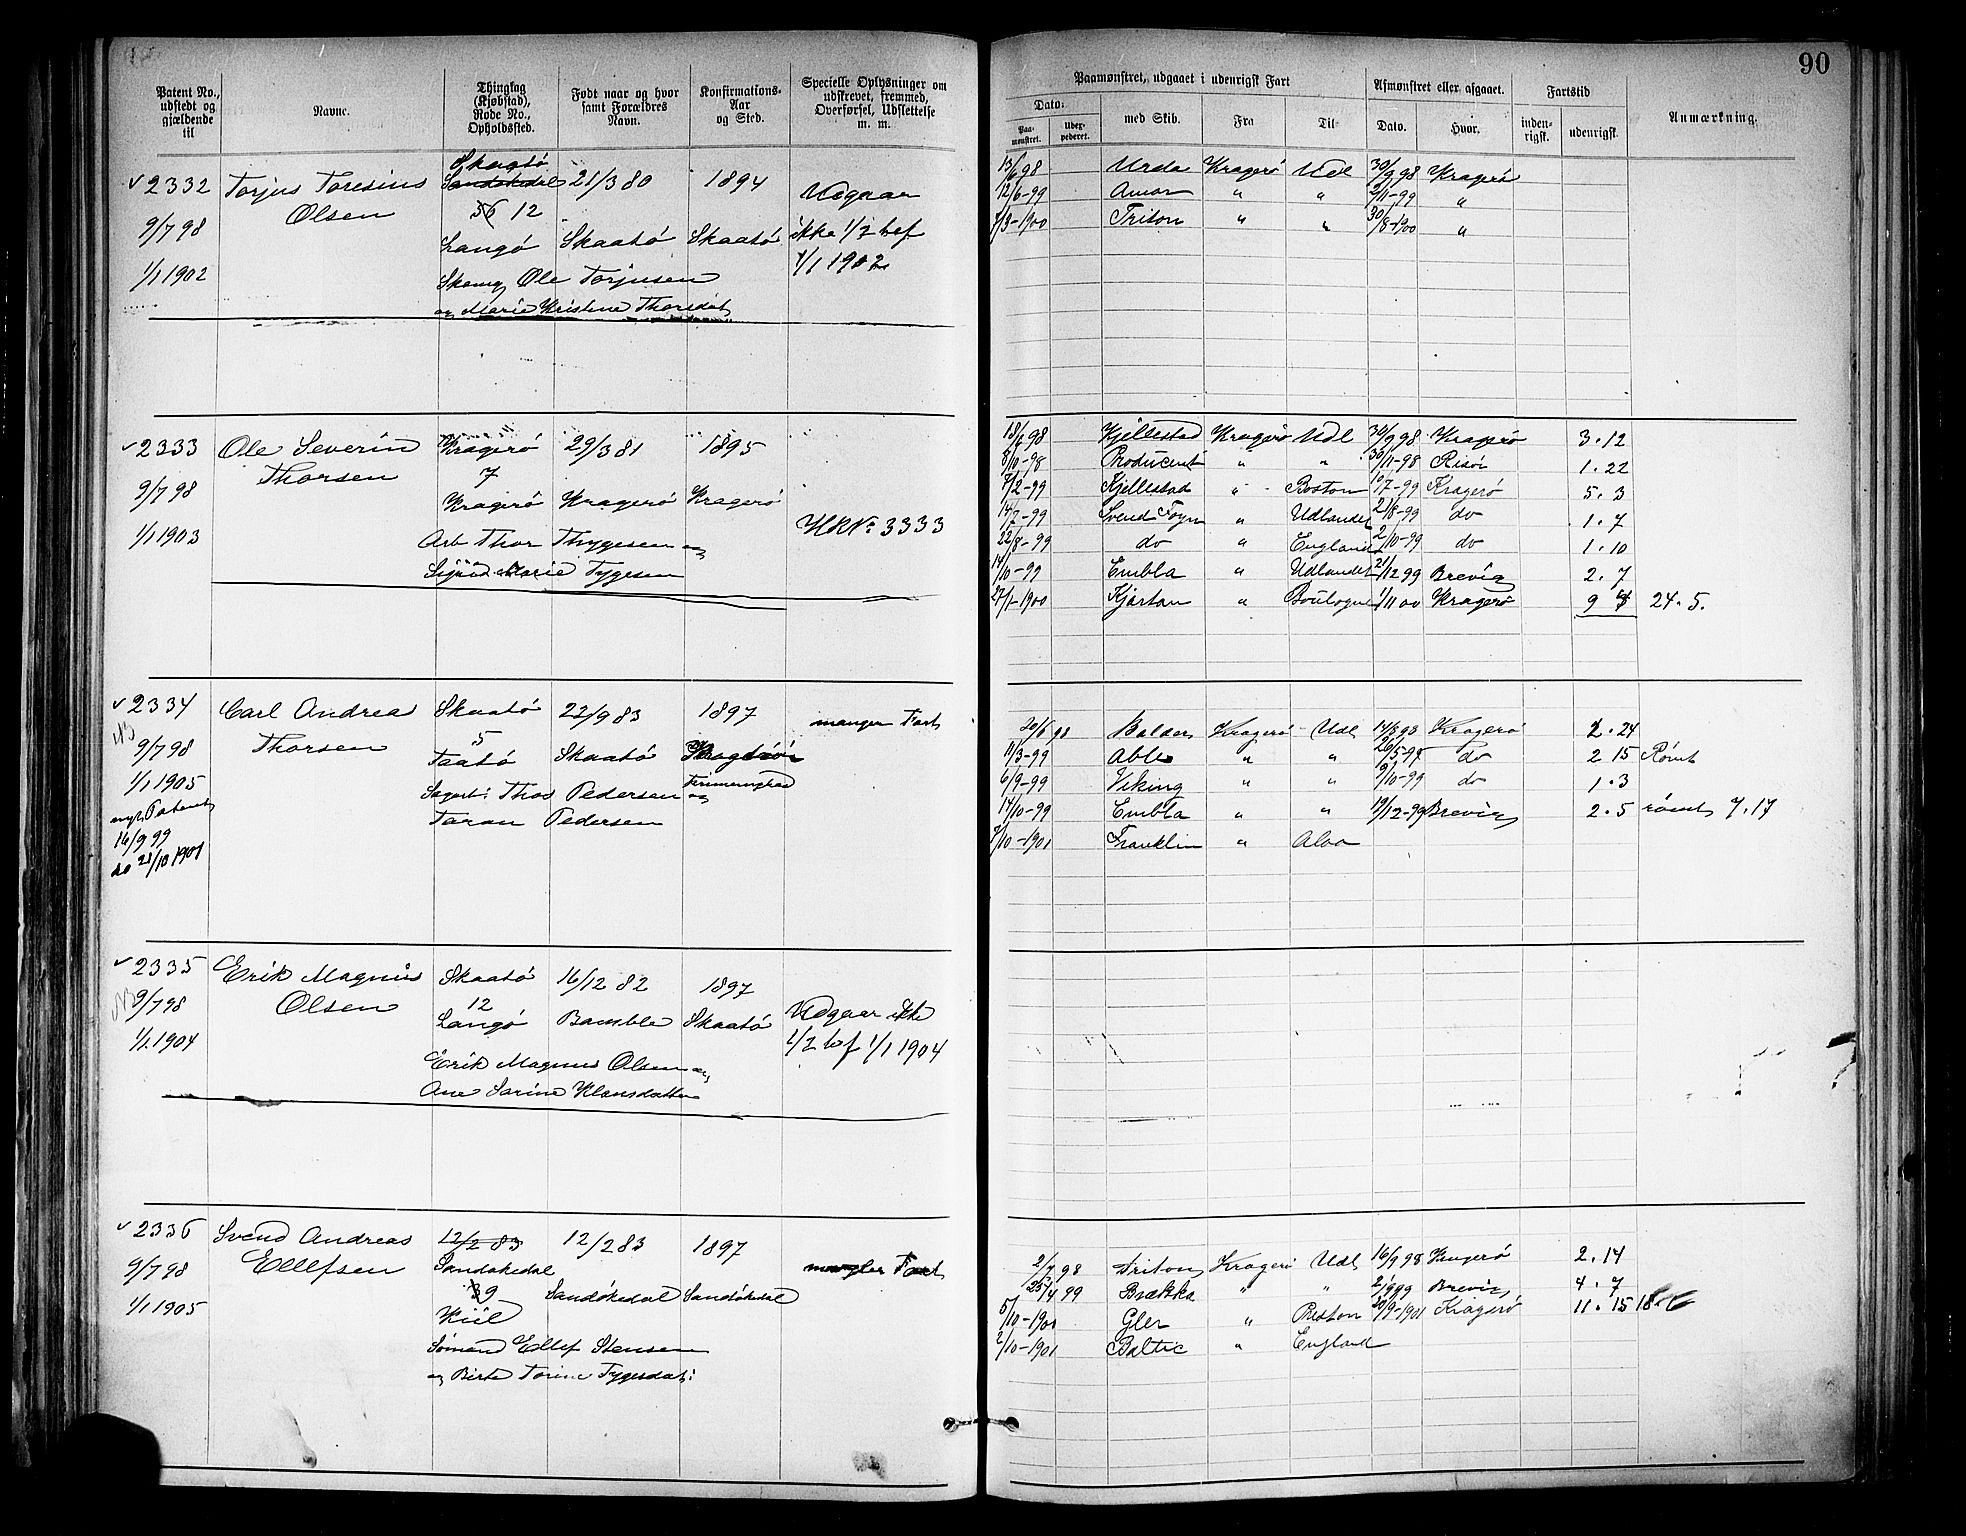 90
Patent No., udstedt og gjældende til
Navne.
Thinglag (Kjøbstad), Rode No., Opholdssted.
Født naar og hvor samt Forældres Navn.
Konfirmations-Aar og Sted.
Specielle Oplysninger om udskrevet, fremmed, Overførsel, Udslettelse m. m.
Paamønstret, udgaaet i udenrigsk Fart
Dato:
Paa-mønstret.
Uder-pederet.
med Skib.
Fra
Til
Afmønstret eller afgaaet.
Dato.
Hvor.
Fartstid
inden-rigsk.
udenrigsk.
Anmærkning.
Skaatö
2332 Torjus Toresius Sandökedal 21/3 80 1894 Udgaar
Olsen 56 12
9/7 98 Langö Skaatö Skaatö ikke 1/2 bef
1/1 1902 1/1 1902
Ole Torjusen
og Marie Kristine Thorsdat
13/6 98 Urda Kragerö Udl 30/9 98 Kragerö
12/6-99 Amor " " 2/11-99 "
1/3-1900 Triton " " 30/8-1900 "
2333 Ole Severin Kragerö 29/3 81 1895
Thorsen 7
9/7 98 Kragerö Kragerö Kragerö
HRNo 3333
1/1 1903 Arb Thor Thygesen og
Sigrid Marie Tygesen
18/6 98 Kjellestad Kragerö Udl 30/9 98 Kragerö 3.12
8/10-98 Producent " " 30/11-98 Risör 1.22
7/2-99 Kjellestad " Boston 10/7-99 Kragerö 5.3
14/7-99 Svend Foyn " Udlandet 21/8-99 do 1.7
22/8-99 do " England 2/10-99 do 1.10
14/10-99 Embla " Udlandet 21/12 99 Brevig 2.7
27/1-1900 Kjartan " Boulogne 1/11 00 Kragerö 9 24.5.
2334 Carl Andrea Skaatö 22/9 83 1897 mangler Fart
NB Thorsen 5
9/7 98 Taatö Skaatö
1/1 1905 Thos Pedersen og
nyt Patent Taran Pedersen
16/9 99
do 21/10 1901
20/6 98 Balder Kragerö Udl Kragerö 2.24
11/3-99 Able " " do 2 15 Römt
6/9-99 Viking " " 9/10-99 do 1.3
14/10-99 Embla " " 19/12-99 Brevig 2.5 römt 7.17
7/10-1901 Franklin " Aloa
2335 Erik Magnus Skaatö 16/12 82 1897
NB 9/7 98 Olsen 12 Udgaar ikke
Langö Bamble Skaatö
1/1 1904 1/2 bef 1/1 1904
Erik Magnus Olsen og
Ane Sorine Klausdatter
2336 Svend Andreas 12/2 83 12/2 83 1897
9/7 98 Ellefsen Sandökedal mangler Fart
39 Sandökedal Sandökedal
1/1 1905 Kiil
Sömand Ellef Stensen
og Birte Torine Tygesdat:
2/7 98 Triton Kragerö Udl 16/9 98 Kragerö 2.14
25/4 99 Brække " " 2/9 99 Brevig 4.7
5/10-1900 Gler " Preston 20/9-1901 Kragerö 11.15
2/10-1901 Baltic " England